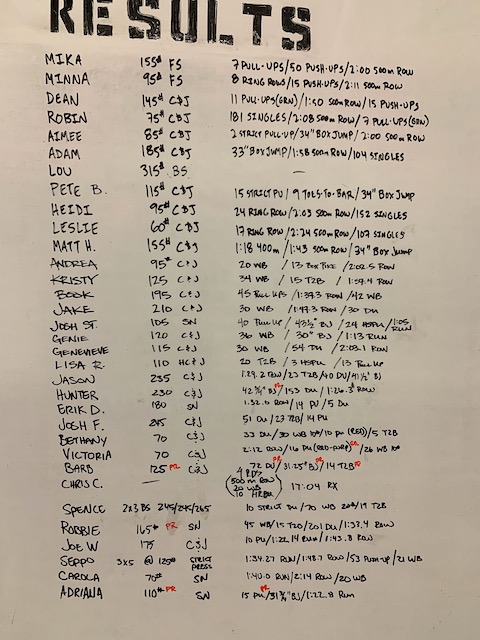 RESULTS
MIKA 155# FS 7 PULL-UPS/50 PUSH-UPS/2:00 500M ROW
MINNA 95# FS 8 RING ROWS/15 PUSH-UPS/2:11 500M ROW
DEAN 145# C&J 11 PULL-UPS(GRN)/1:50 500M ROW/15 PUSH-UPS
ROBIN 75# C&J 181 SINGLES/2:08 500M ROW/7 PULL-UPS(GRN)
AIMEE 85# C&J 2 STRICT PULL-UP/34" BOX JUMP/2:00 500M ROW
ADAM 185# C&J 33" BOX JUMP/1:58 500M ROW/104 SINGLES
LOU 315# BS —
PETE B. 115# C&J 15 STRICT PU/9 TOES-TO-BAR/34" BOX JUMP
HEIDI 95# C&J 24 RING ROW/2:03 500M ROW/152 SINGLES
LESLIE 60# C&J 17 RING ROW/2:24 500M ROW/107 SINGLES
MATT H. 155# C&J 1:18 400M/1:43 500M ROW/34" BOX JUMP
ANDREA 95# C&J 20 WB /2:02.5 ROW
KRISTY 125 C&J 34 WB / 15 T2B / 1:59.4 ROW
BOOK 195 C&J 45 PULL UPS / 1:39.3 ROW/42 WB
JAKE 210 C&J 30 WB / 1:49.3 ROW / 30 DU
JOSH ST. 105 SN 40 PULL UP / 43½" BJ / 24 HSPU/ 1:05 RUN
GENIE 120 C&J 36 WB / 30" BJ / 1:13 RUN
GENEVIEVE 115 C&J 30 WB / 54 DU / 2:03.1 ROW
LISA R. 110 HC&J 20 T2B / 3 HSPU / 13 PULL UP
JASON 235 C&J 1:29.2 ROW/23 T2B/40 DU/41½" BJ
HUNTER 230 C&J 42¾" BJ PR/153 DU/ 1:26.3 ROW
ERIK D. 180 SN 1:32.0 ROW/14 PU/5 DU
JOSH F. 245 C&J 51 DU/23 T2B/14 PU
BETHANY 70 C&J 33 DU/30 WB 10#/10 PU (RED)/5 T2B
VICTORIA 70 C&J 2:12 ROW/16 PU PR/26 WB 10#
BARB 125 PR C&J 72 DU PR/31.25" BJ PR/14 T2B PR
CHRIS C. — 4 RDS 500 M ROW 20 WB 10 HRPU 17:04 RX
SPENCE 2x3 BS 245/245/265 10 STRICT DU/70 WB 20#/19 T2B
ROBBIE 165# PR SN 45 WB/15 T2B/201 DU/1:33.4 ROW
JOE W 175 C&J 10 PU/1:22.14 RUN/1:43.8 ROW
SEPPO 3x5 @ 125# STRICT PRESS 1:34.27 RUN/1:48.7 ROW/53 PUSH-UP/21 WB
CAROLA 70# SN 1:40.0 RUN/2:14 ROW/20 WB
ADRIANA 110# PR SN 15 PU PR/31¾" BJ/1:22.8 RUN